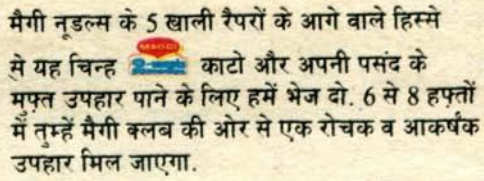 मैगी नूडल्स के 5 खाली रैपरों के आगे वाले हिस्से
से यह चिन्ह MAGGI काटो और अपनी पसंद के
मुफ़्त उपहार पाने के लिए हमें भेज दो. 6 से 8 हफ़्तों
में तुम्हें मैगी क्लब की ओर से एक रोचक व आकर्षक
उपहार मिल जाएगा.